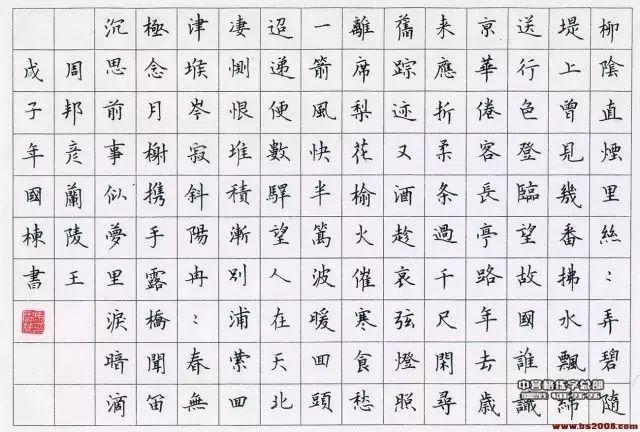 柳陰直煙里絲：弄碧隨
堤上曾見幾番拂水飄綿
送行色登臨望故國誰識
京華倦客長亭路年去歲
来應折柔条過千尺閑尋
舊踪迹又酒趁哀弦燈照
離席梨花榆火催寒食愁
一箭風快半篙波暖囬頭
迢递便數驛望人在天北
凄惻恨堆積漸別浦縈囬
津堠岑寂斜陽冉：春無
極念月榭携手露橋聞笛
沉思前事似夢里淚暗滴
周邦彦蘭陵王
戊子年國棟書
www.bs2008.com